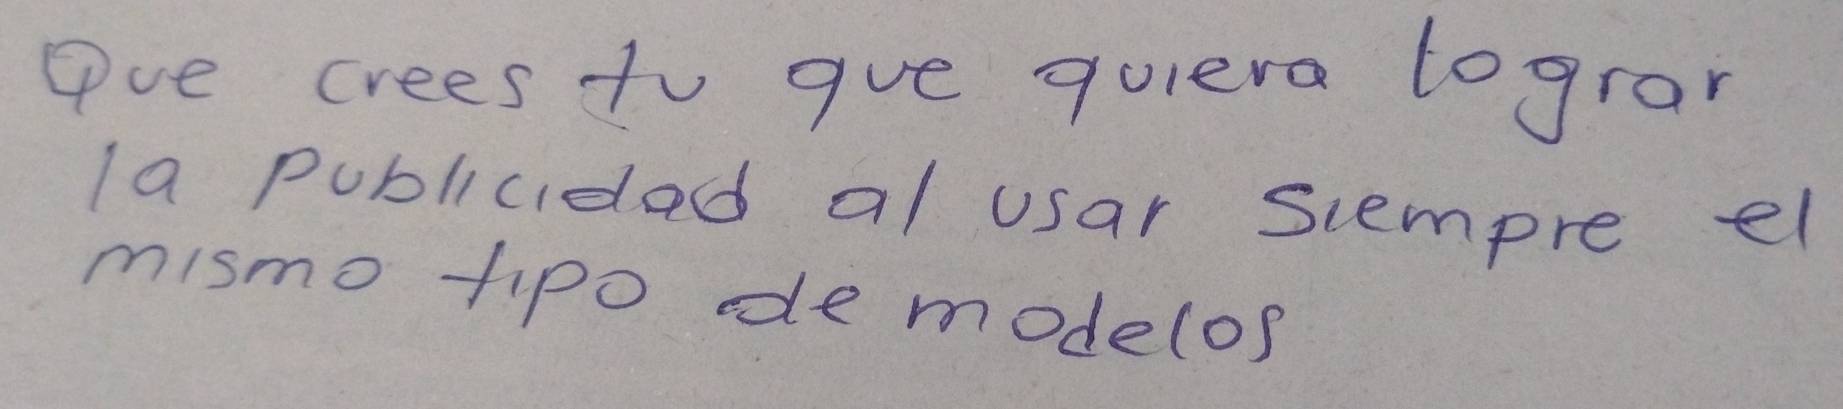 Que crees tu que quiera lograr
la publicidad al usar siempre el
mismo tipo de modelos